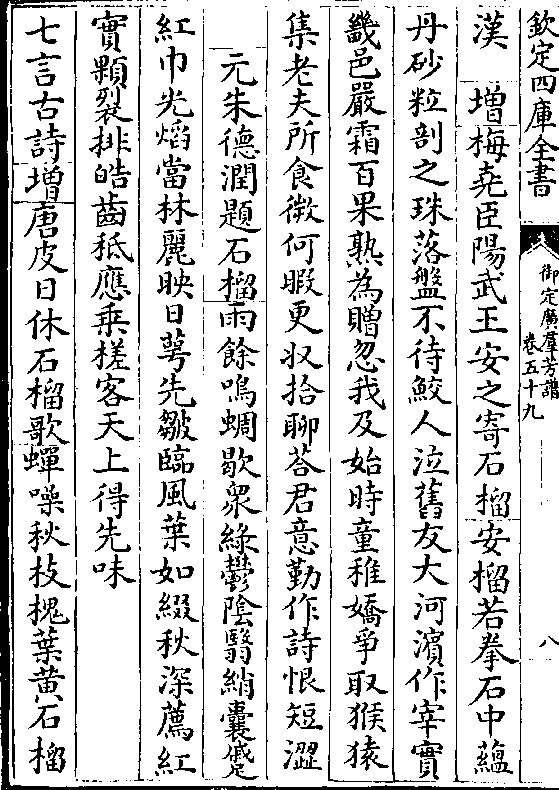 欽定四庫全書
御定廣羣芳譜
卷五十九
八
漢　增梅堯臣陽武王安之寄石榴安榴若拳石中蘊
丹砂粒剖之珠落盤不待鮫人泣舊友大河濱作宰實
畿邑嚴霜百果熟為贈忽我及始時童稚嬌爭取猴猿
集老夫所食微何暇更収拾聊荅君意勤作詩恨短澀
元朱德潤題石榴雨餘鳴蜩歇衆綠鬱陰翳綃囊蹙
紅巾光熖當林麗映日萼先皺臨風葉如綴秋深薦紅
實顆裂排皓齒秪應乗槎客天上得先味
七言古詩增唐皮日休石榴歌蟬噪秋枝槐葉黄石榴